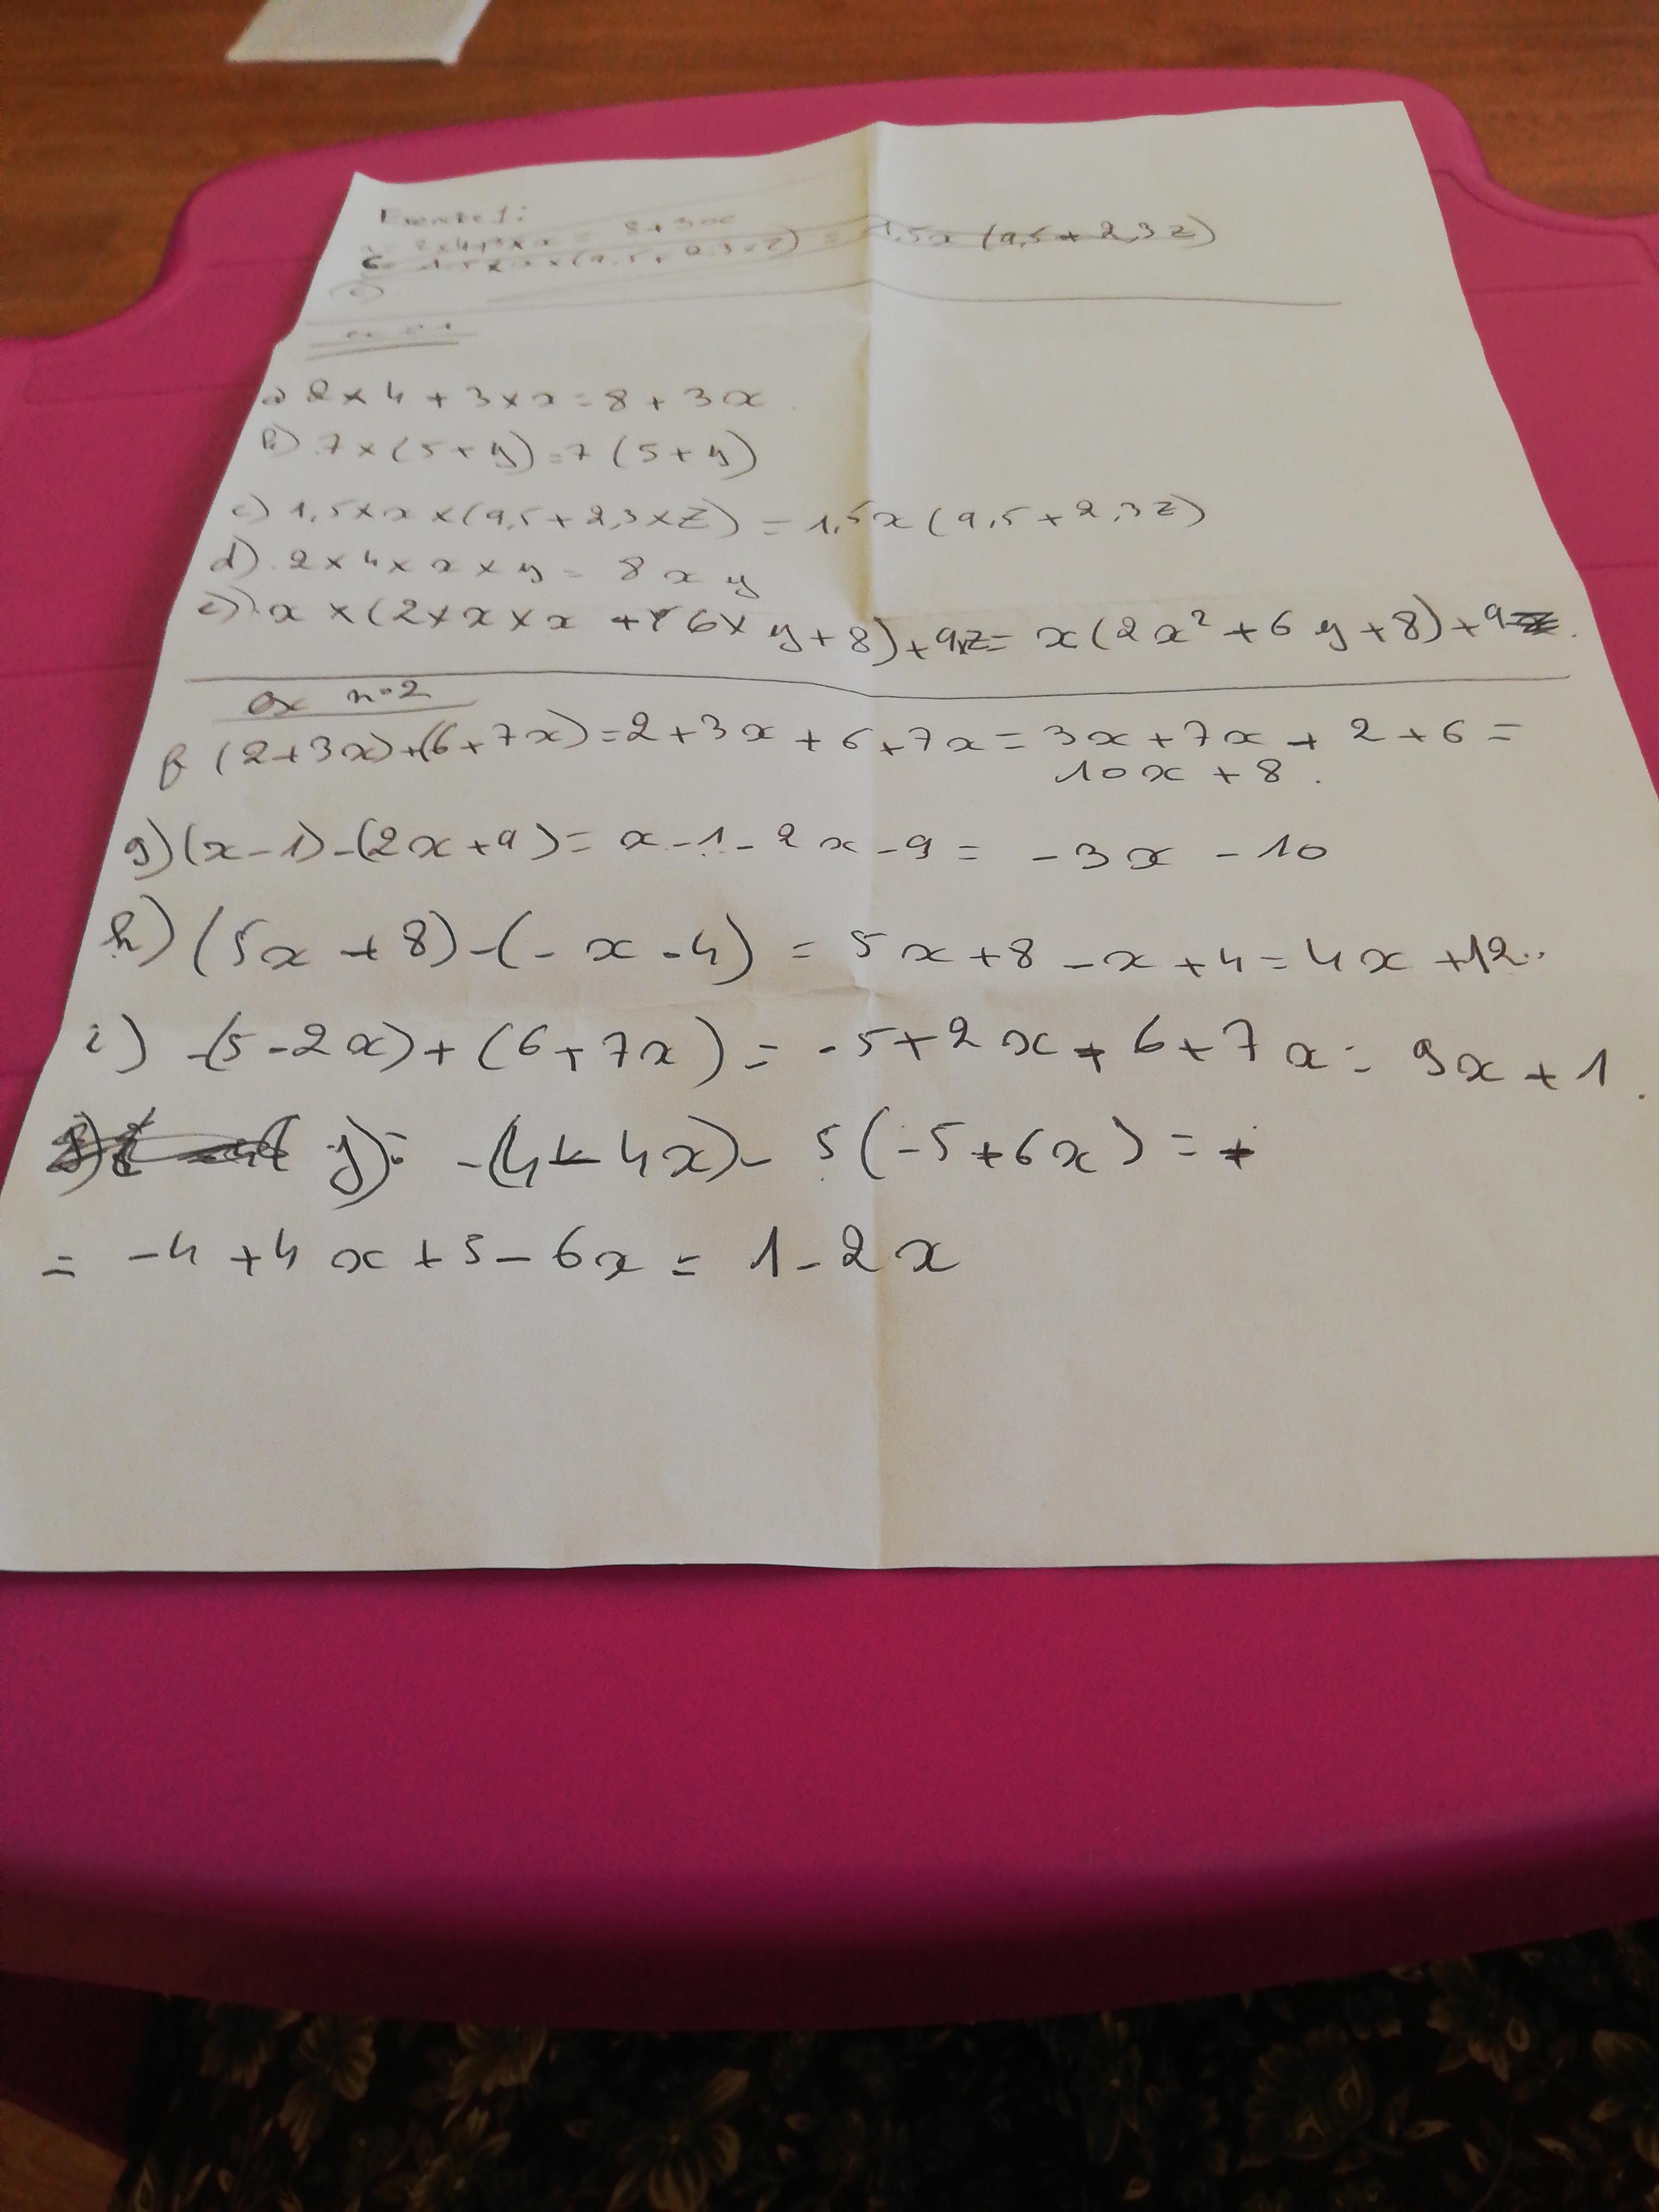 Exercice 1:
a = 2x4+3xx = 8+3x
c = 1,5xxx(9,5+2,3xz) = 1,5x(9,5+2,3z)
a) 2x4+3xx=8+3x
b) 7x(5+y)=7(5+y)
c) 1,5xxx(9,5+2,3xz)=1,5x(9,5+2,3z)
d) 2x4xxxy= 8xy
e) x x(2xxxx + 6x y+8)+9xz= x(2x²+6y+8)+9z.
ex n°2
f (2+3x)+(6+7x)=2+3x+6+7x=3x+7x+2+6=
10x+8.
g) (x-1)-(2x+9)= x-1-2x-9= -3x-10
h) (5x+8)-(-x-4) = 5x+8-x+4=4x+12..
i) -(5-2x)+(6+7x)= -5+2x+6+7x= 9x+1.
j)= -(4-4x)- 5(-5+6x)= +
= -4+4x+5-6x= 1-2x